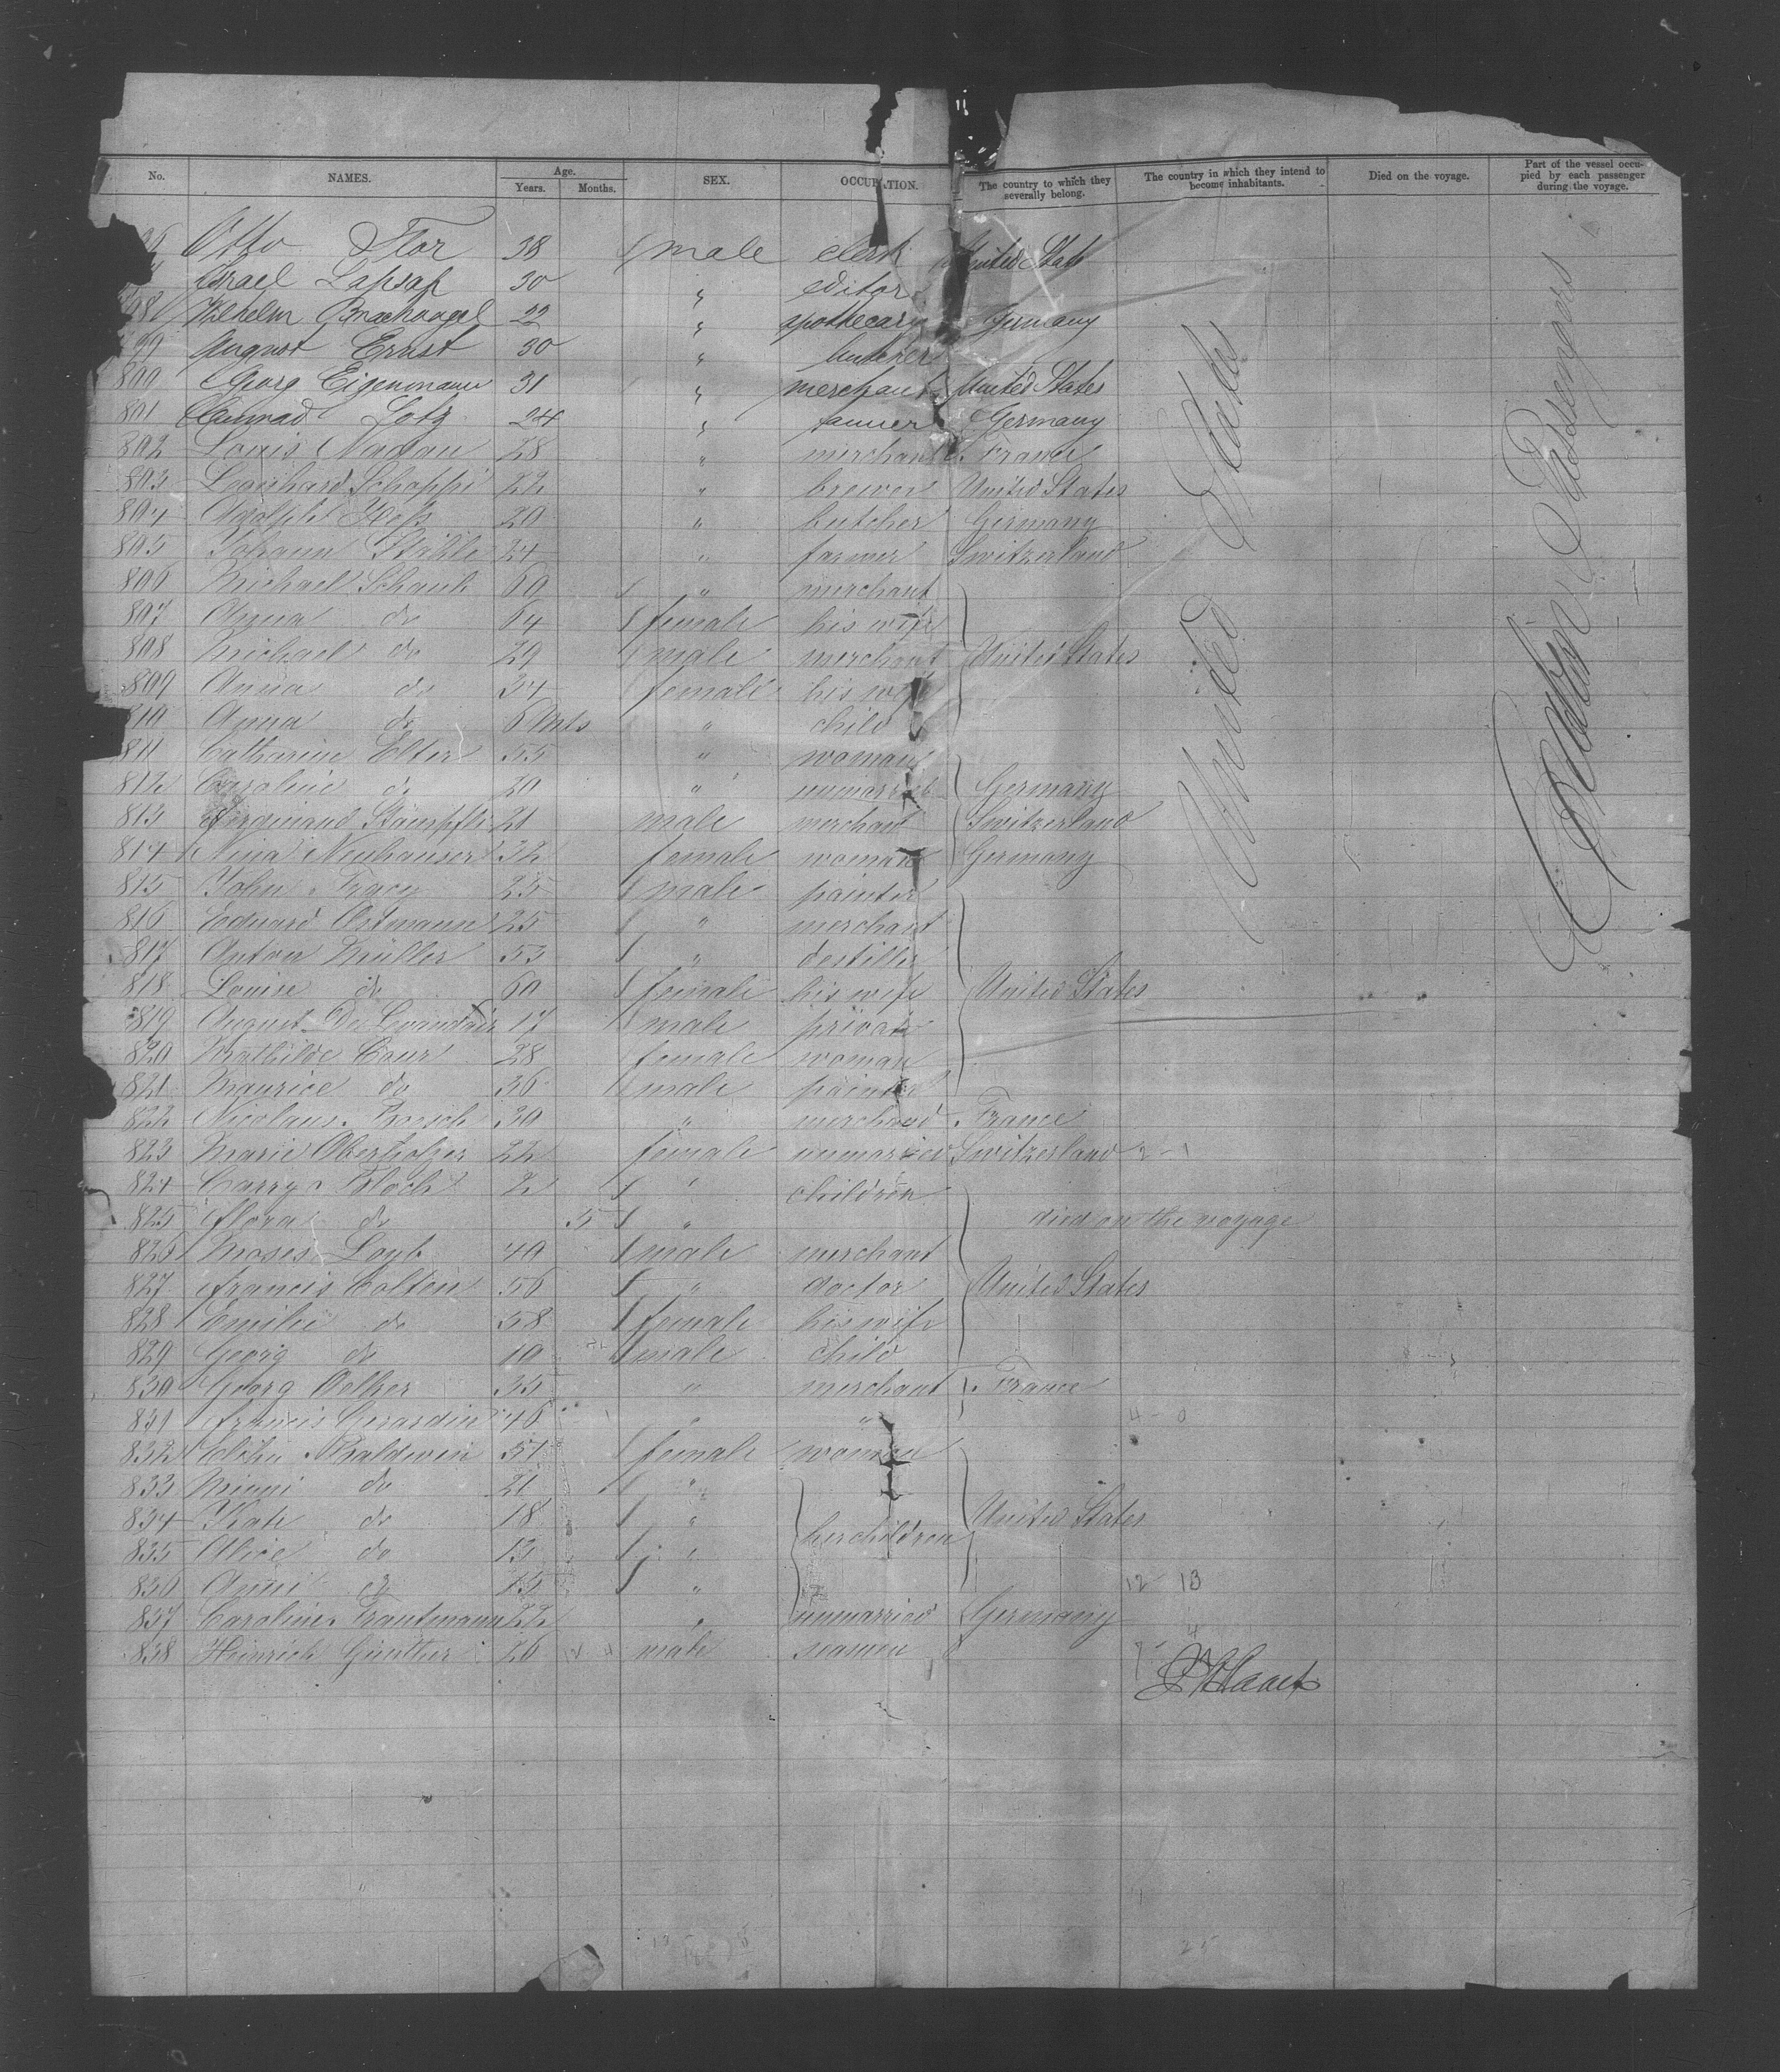 No. NAMES. Age. Years. Months. SEX. OCCUPATION. The country to which they severally belong. The country in which they intend to become inhabitants. Died on the voyage. Part of the vessel occupied by each passenger during the voyage.
Otto Flor 38 male clerk United States
Israel 30 " editor
98 Wilhelm Brachvogel 22 " apothecary Germany
99 August Ernst 30 "
800 Georg Eigenmann 31 " merchant United States
801 Conrad Lotz 24 " Germany
802 Louis 28 " merchant France
803 Leonhard Schoppi 22 " brewer United States
804 Adolph Hess 20 " butcher Germany
805 Johann Stähle 24 " farmer Switzerland
806 Michael Schaub 60 " merchant
807 Anna do 64 female his wife
808 Michael do 29 male merchant United States
809 Anna do 34 female his wife
810 Anna do 6 Mts " child
811 Catharine Elter 55 " woman
812 Caroline do 20 " unmarried Germany
813 Ferdinand Stämpfli 21 male merchant Switzerland
814 Nina Neuhauser 32 female woman Germany
815 John Tracy 25 male painter
816 Eduard Ostmann 25 " merchant
817 Anton Müller 53 " destiller
818 Louise do 60 female his wife United States
819 August De 17 male private
820 Mathilde 28 female woman
821 Maurice do 36 male painter
822 Nicolaus 30 " merchand France
823 Marie Oberholzer 22 female unmarried Switzerland
824 Carry Bloch 2 " children
825 Flora do 5 " died on the voyage
826 Moses Loyb 40 male merchant
827 Francis Colten 56 " doctor United States
828 Emilie do 58 female his wife
829 Georg do 10 male child
830 Georg 35 " merchant France
831 Francis Gerardin 46 " "
832 Baldwin 51 female woman
833 Minni do 21 "
834 Kate do 18 " her children United States
835 Alice do 13 "
836 Anni do 15 "
837 Caroline Trautmann 22 " unmarried Germany
838 Heinrich Günther 26 male seamen
United States
Cabin Passengers